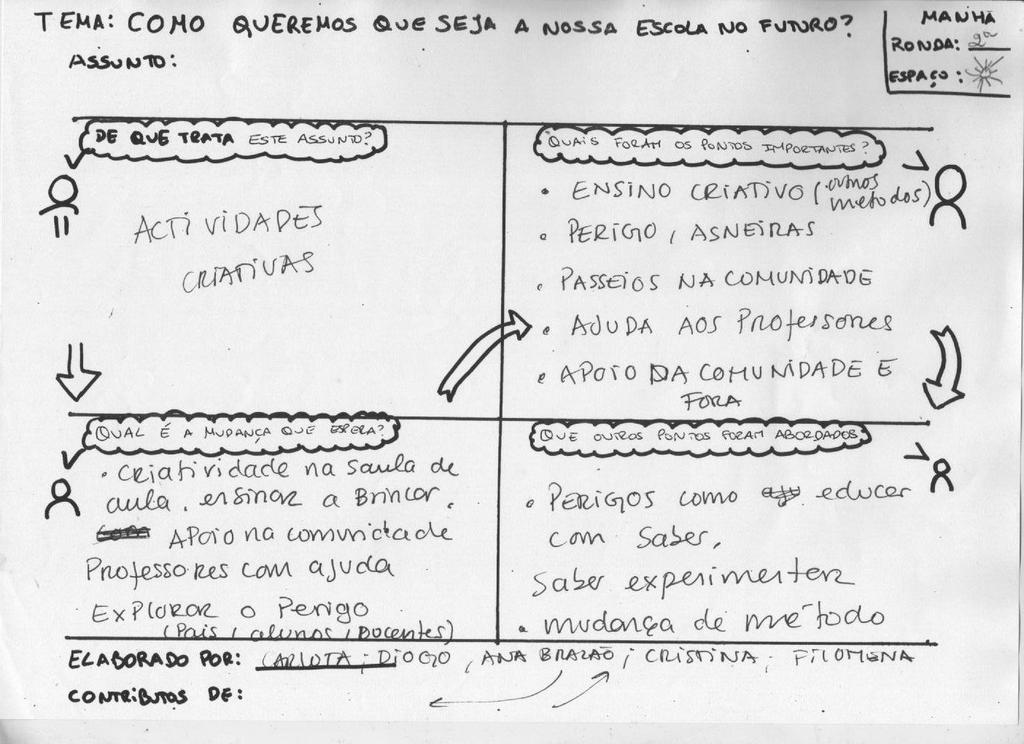 TEMA: COMO QUEREMOS QUE SEJA A NOSSA ESCOLA NO FUTURO?
ASSUNTO:
MANHÃ
RONDA: 2ª
ESPAÇO:
DE QUE TRATA ESTE ASSUNTO?
ACTIVIDADES
CRIATIVAS
QUAIS FORAM OS PONTOS IMPORTANTES?
• ENSINO CRIATIVO (outros
metodos)
• PERIGO, ASNEIRAS
• PASSEIOS NA COMUNIDADE
• AJUDA AOS PROfessores
• APOIO DA COMUNIDADE E
FORA
QUAL É A MUDANÇA QUE ESPERA?
• Criatividade na saula de
aula, ensinar a Brincar.
APoio na comunidade
Professores com ajuda
Explorar o Perigo
(Pais, alunos, Docentes)
QUE OUTROS PONTOS FORAM ABORDADOS
• PERIGOS como educar
com Saber,
Saber experimentar
• mudança de método
ELABORADO POR: CARLOTA; DIOGO, ANA BRAZÃO; CRISTINA; FILOMENA
CONTRIBUTOS DE: